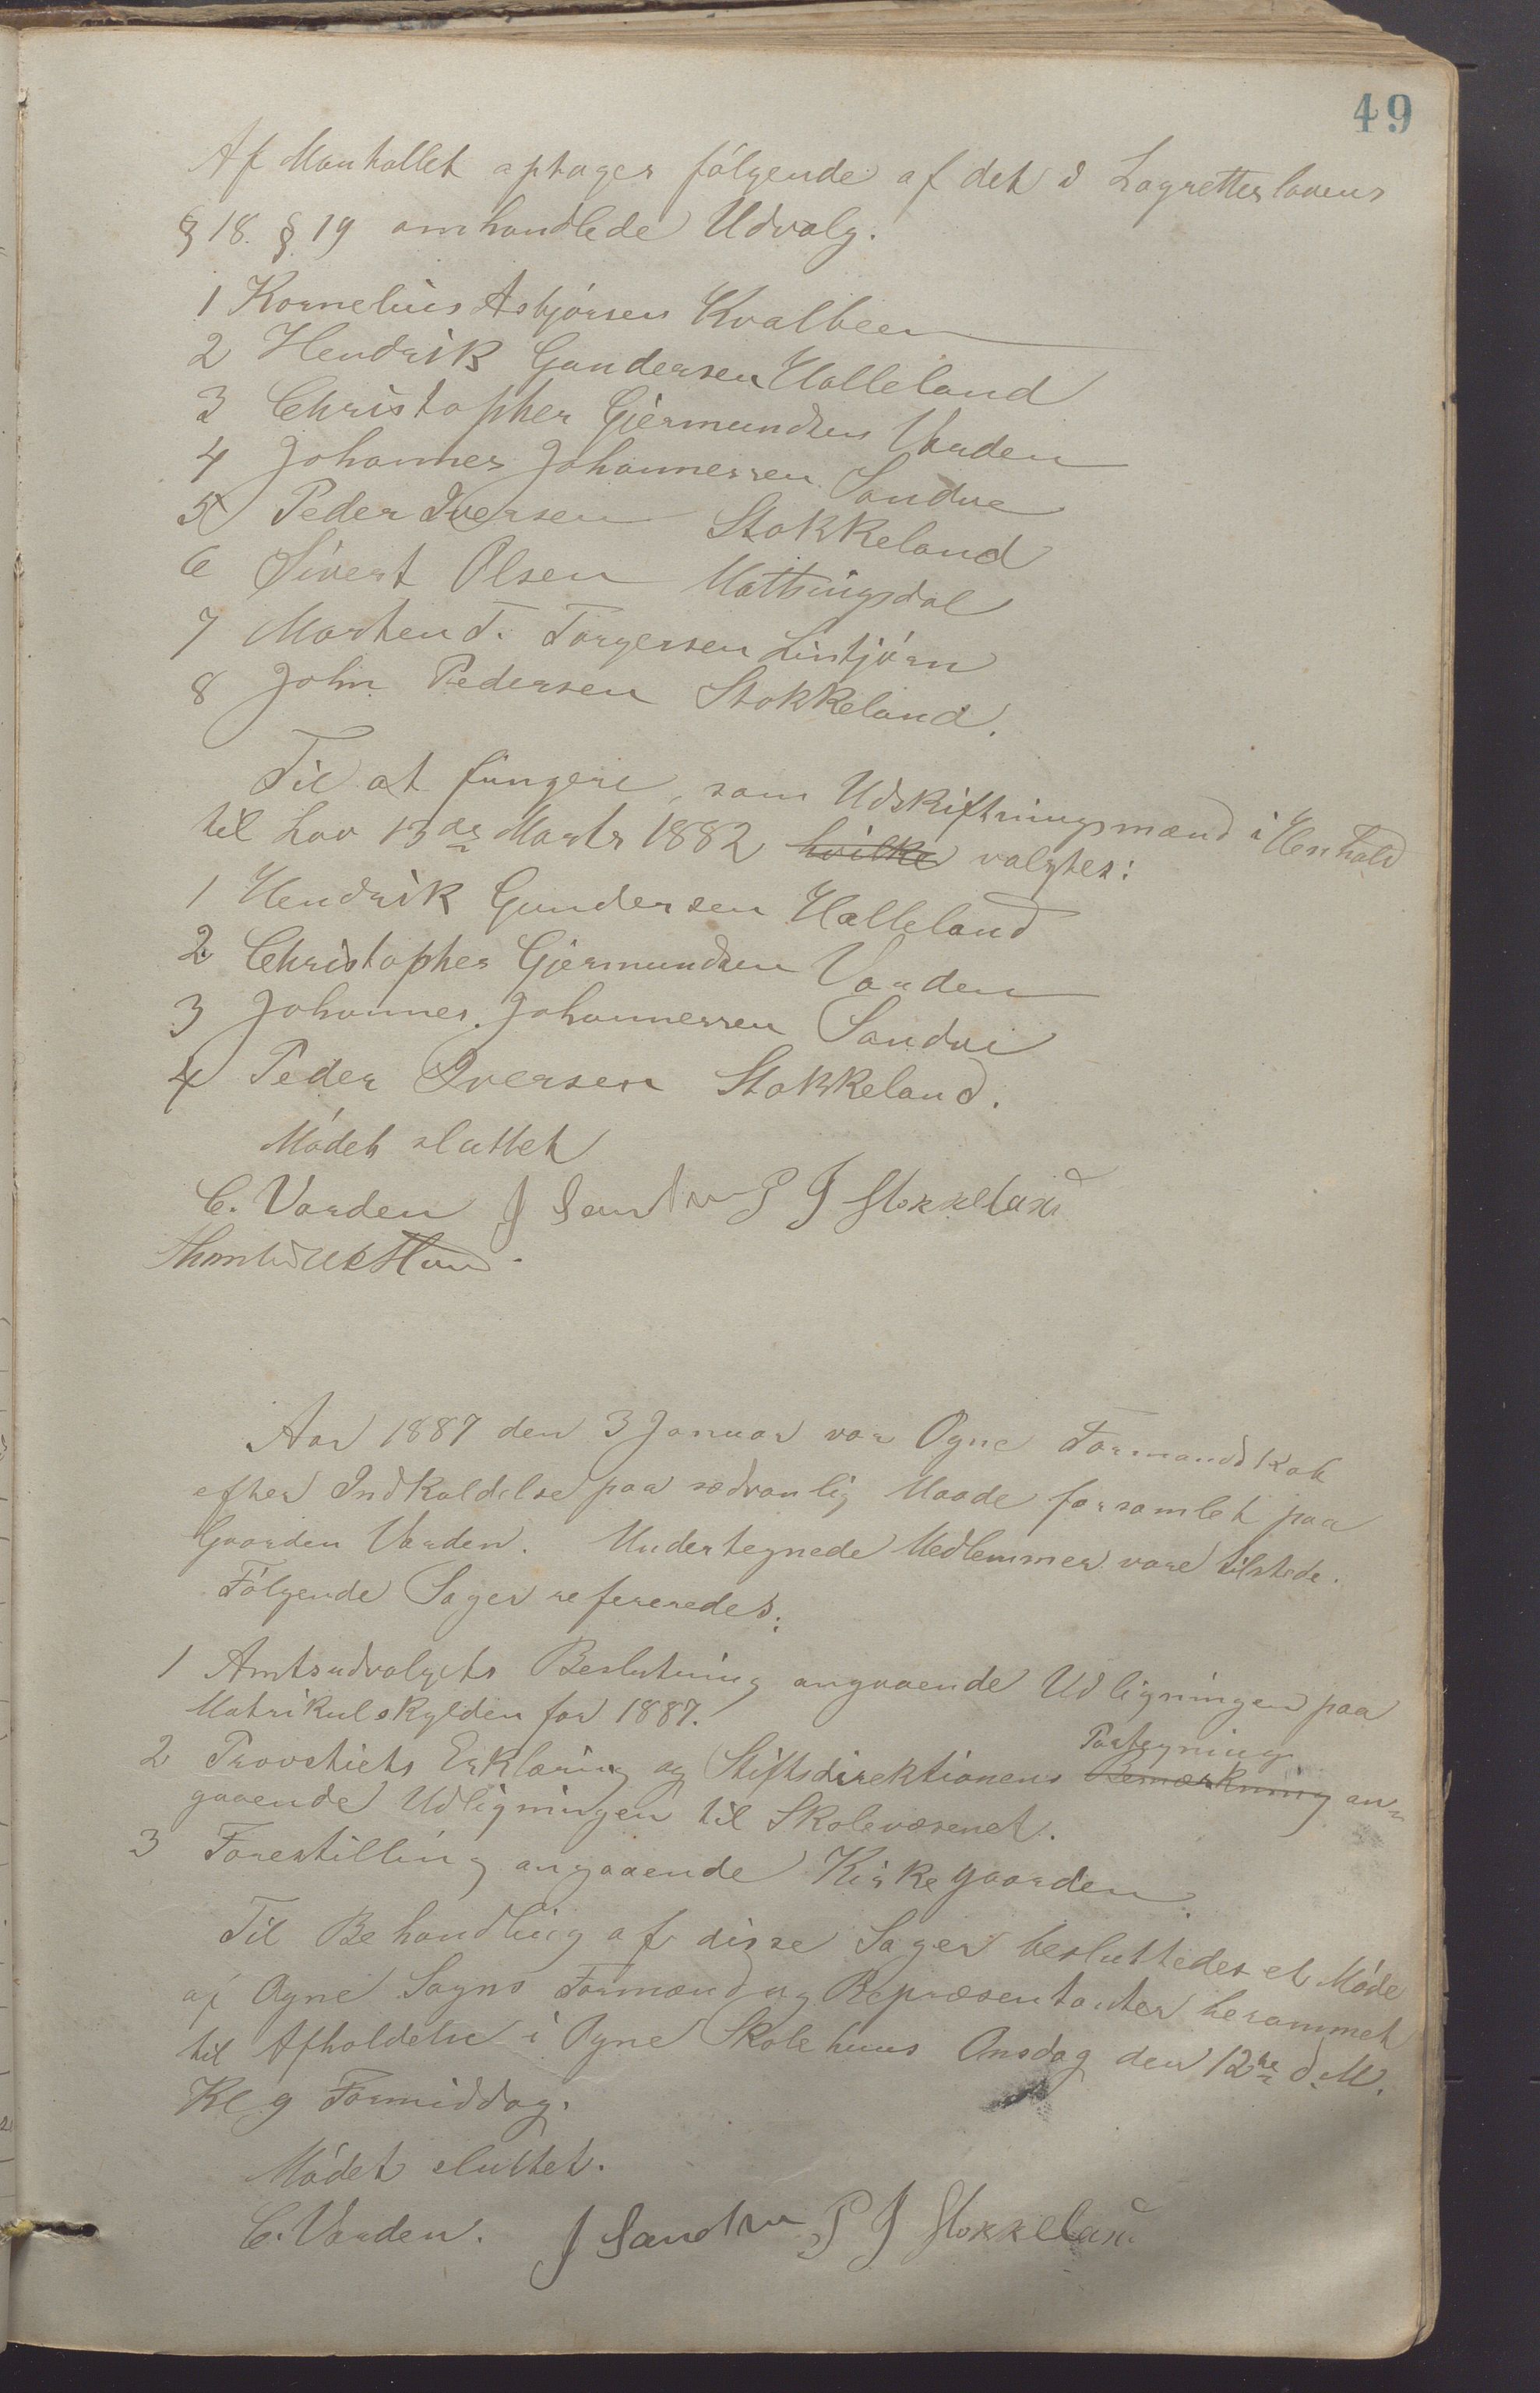 49
Af Mantallet optages følgende af det i Lagretteslovens
§ 18. § 19 omhandlede Udvalg.
1 Kornelius Asbjørsen Kvalbeen
2 Hendrik Gundersen Halleland
3 Christopher Gjermundsen Varden
4 Johannes Johannessen Sandve
5 Peder Iversen Stokkeland
6 Sivert Olsen Mattingsdal
7 Morten T. Torgersen Lintjørn
8 John Pedersen Stokkeland.
Til at fungere, som Udskiftningsmænd i Henhold
til Lov 13de Marts 1882 hvilke valgtes:
1 Hendrik Gundersen Halleland
2 Christopher Gjermundsen Varden
3 Johannes Johannessen Sandve
4 Peder Iversen Stokkeland.
Mødet sluttet
C. Varden J Sandve P J Stokkeland
Aar 1887 den 3 Januar var Ogne Formandskab
efter Indkaldelse paa sædvanlig Maade forsamlet paa
Gaarden Varden. Undertegnede Medlemmer vare tilstede.
Følgende Sager refereredes:
1 Amtsudvalgets Beslutning angaaende Udligningen paa
Matrikulskylden for 1887.
Paategning
2 Provstiets Erklæring og Stiftsdirektionens Bemærkning an-
gaaende Udligningen til Skolevæsenet.
3 Forestilling angaaende Kirkegaarden.
Til Behandling af disse Sager besluttedes et Møde
af Ogne Sogns Formænd og Repræsentanter berammet
til Afholdelse i Ogne Skolehuus Onsdag den 12te d. M.
Kl 9 Formiddag.
Mødet sluttet.
C. Varden. J Sandve P J Stokkeland